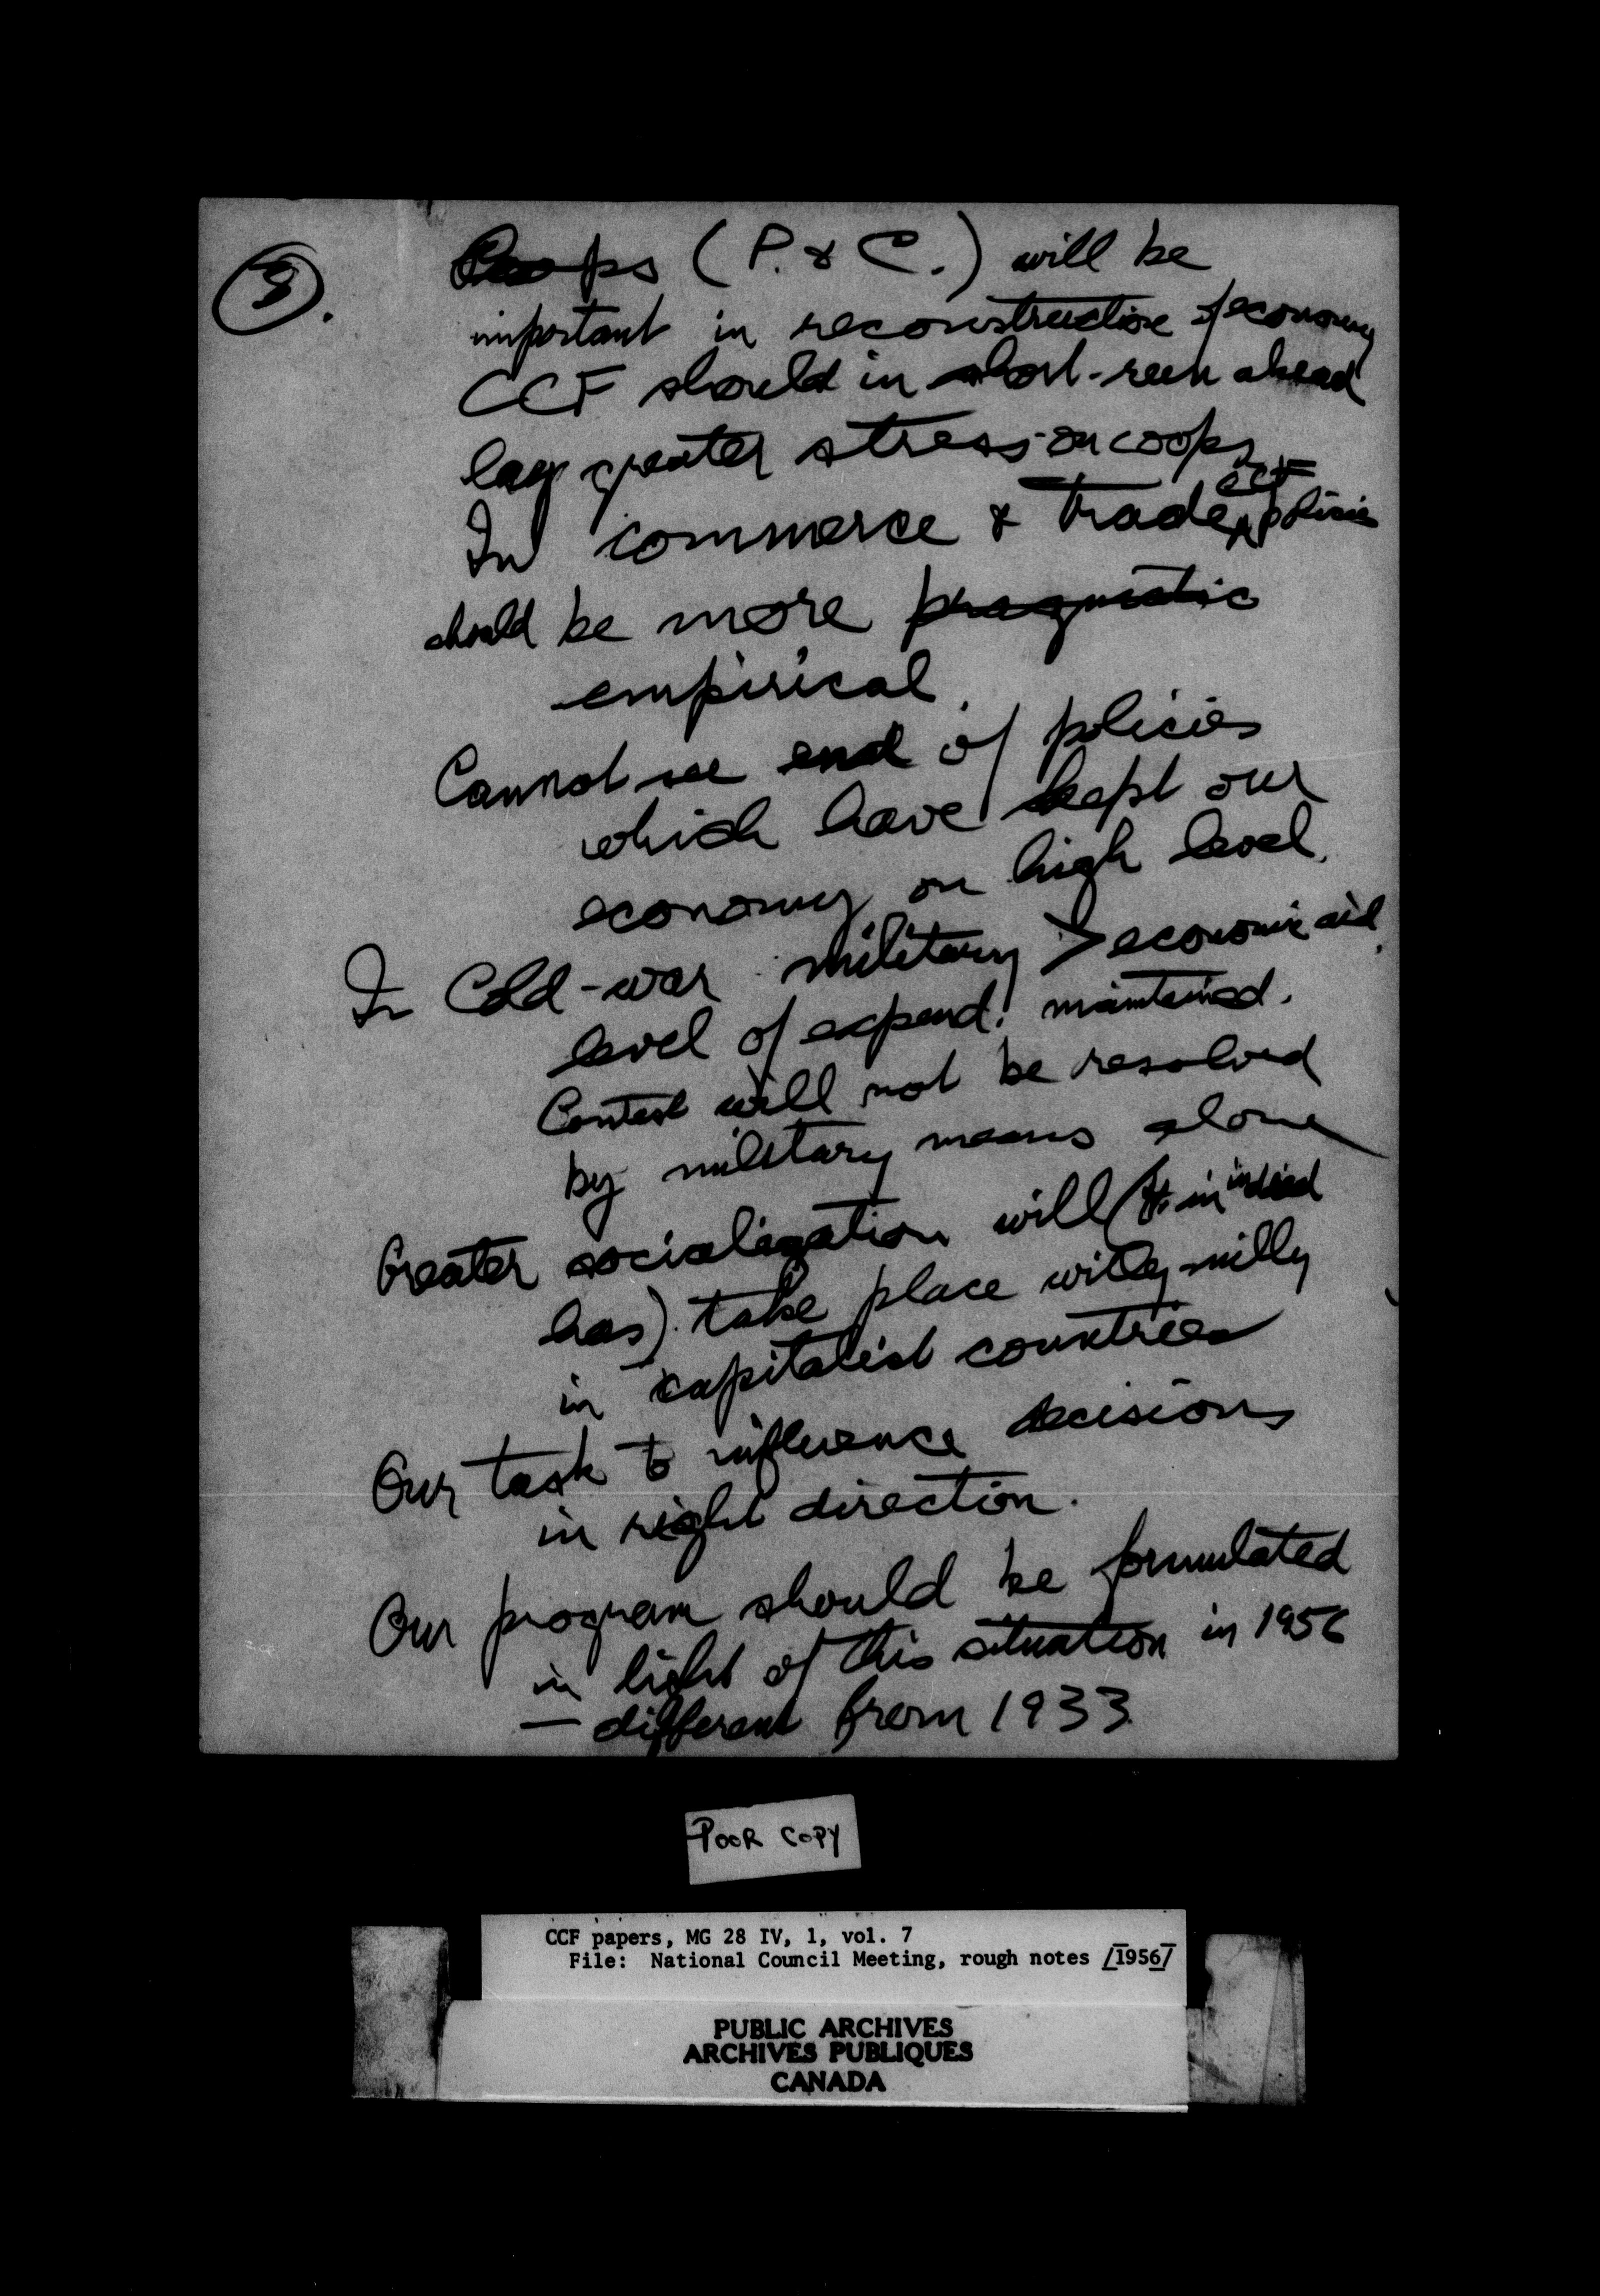 3.
Coops (P. & C.) will be
important in reconstruction of economy
CCF should in short-run ahead
lay greater stress on coops
CCF
In commerce & trade, policies
should be more pragmatic
empirical.
Cannot see end of policies
which have kept our
economy on high level.
In Cold-war military > economic aid.
level of expend. maintained.
Contest will not be resolved
by military means alone
Greater socialization will (& in indeed
has) take place willy-nilly
in capitalist countries
Our task to influence decisions
in right direction.
Our program should be formulated
in light of this situation in 1956
— different from 1933
POOR COPY
CCF papers, MG 28 IV, 1, vol. 7
File: National Council Meeting, rough notes /1956/
PUBLIC ARCHIVES
ARCHIVES PUBLIQUES
CANADA